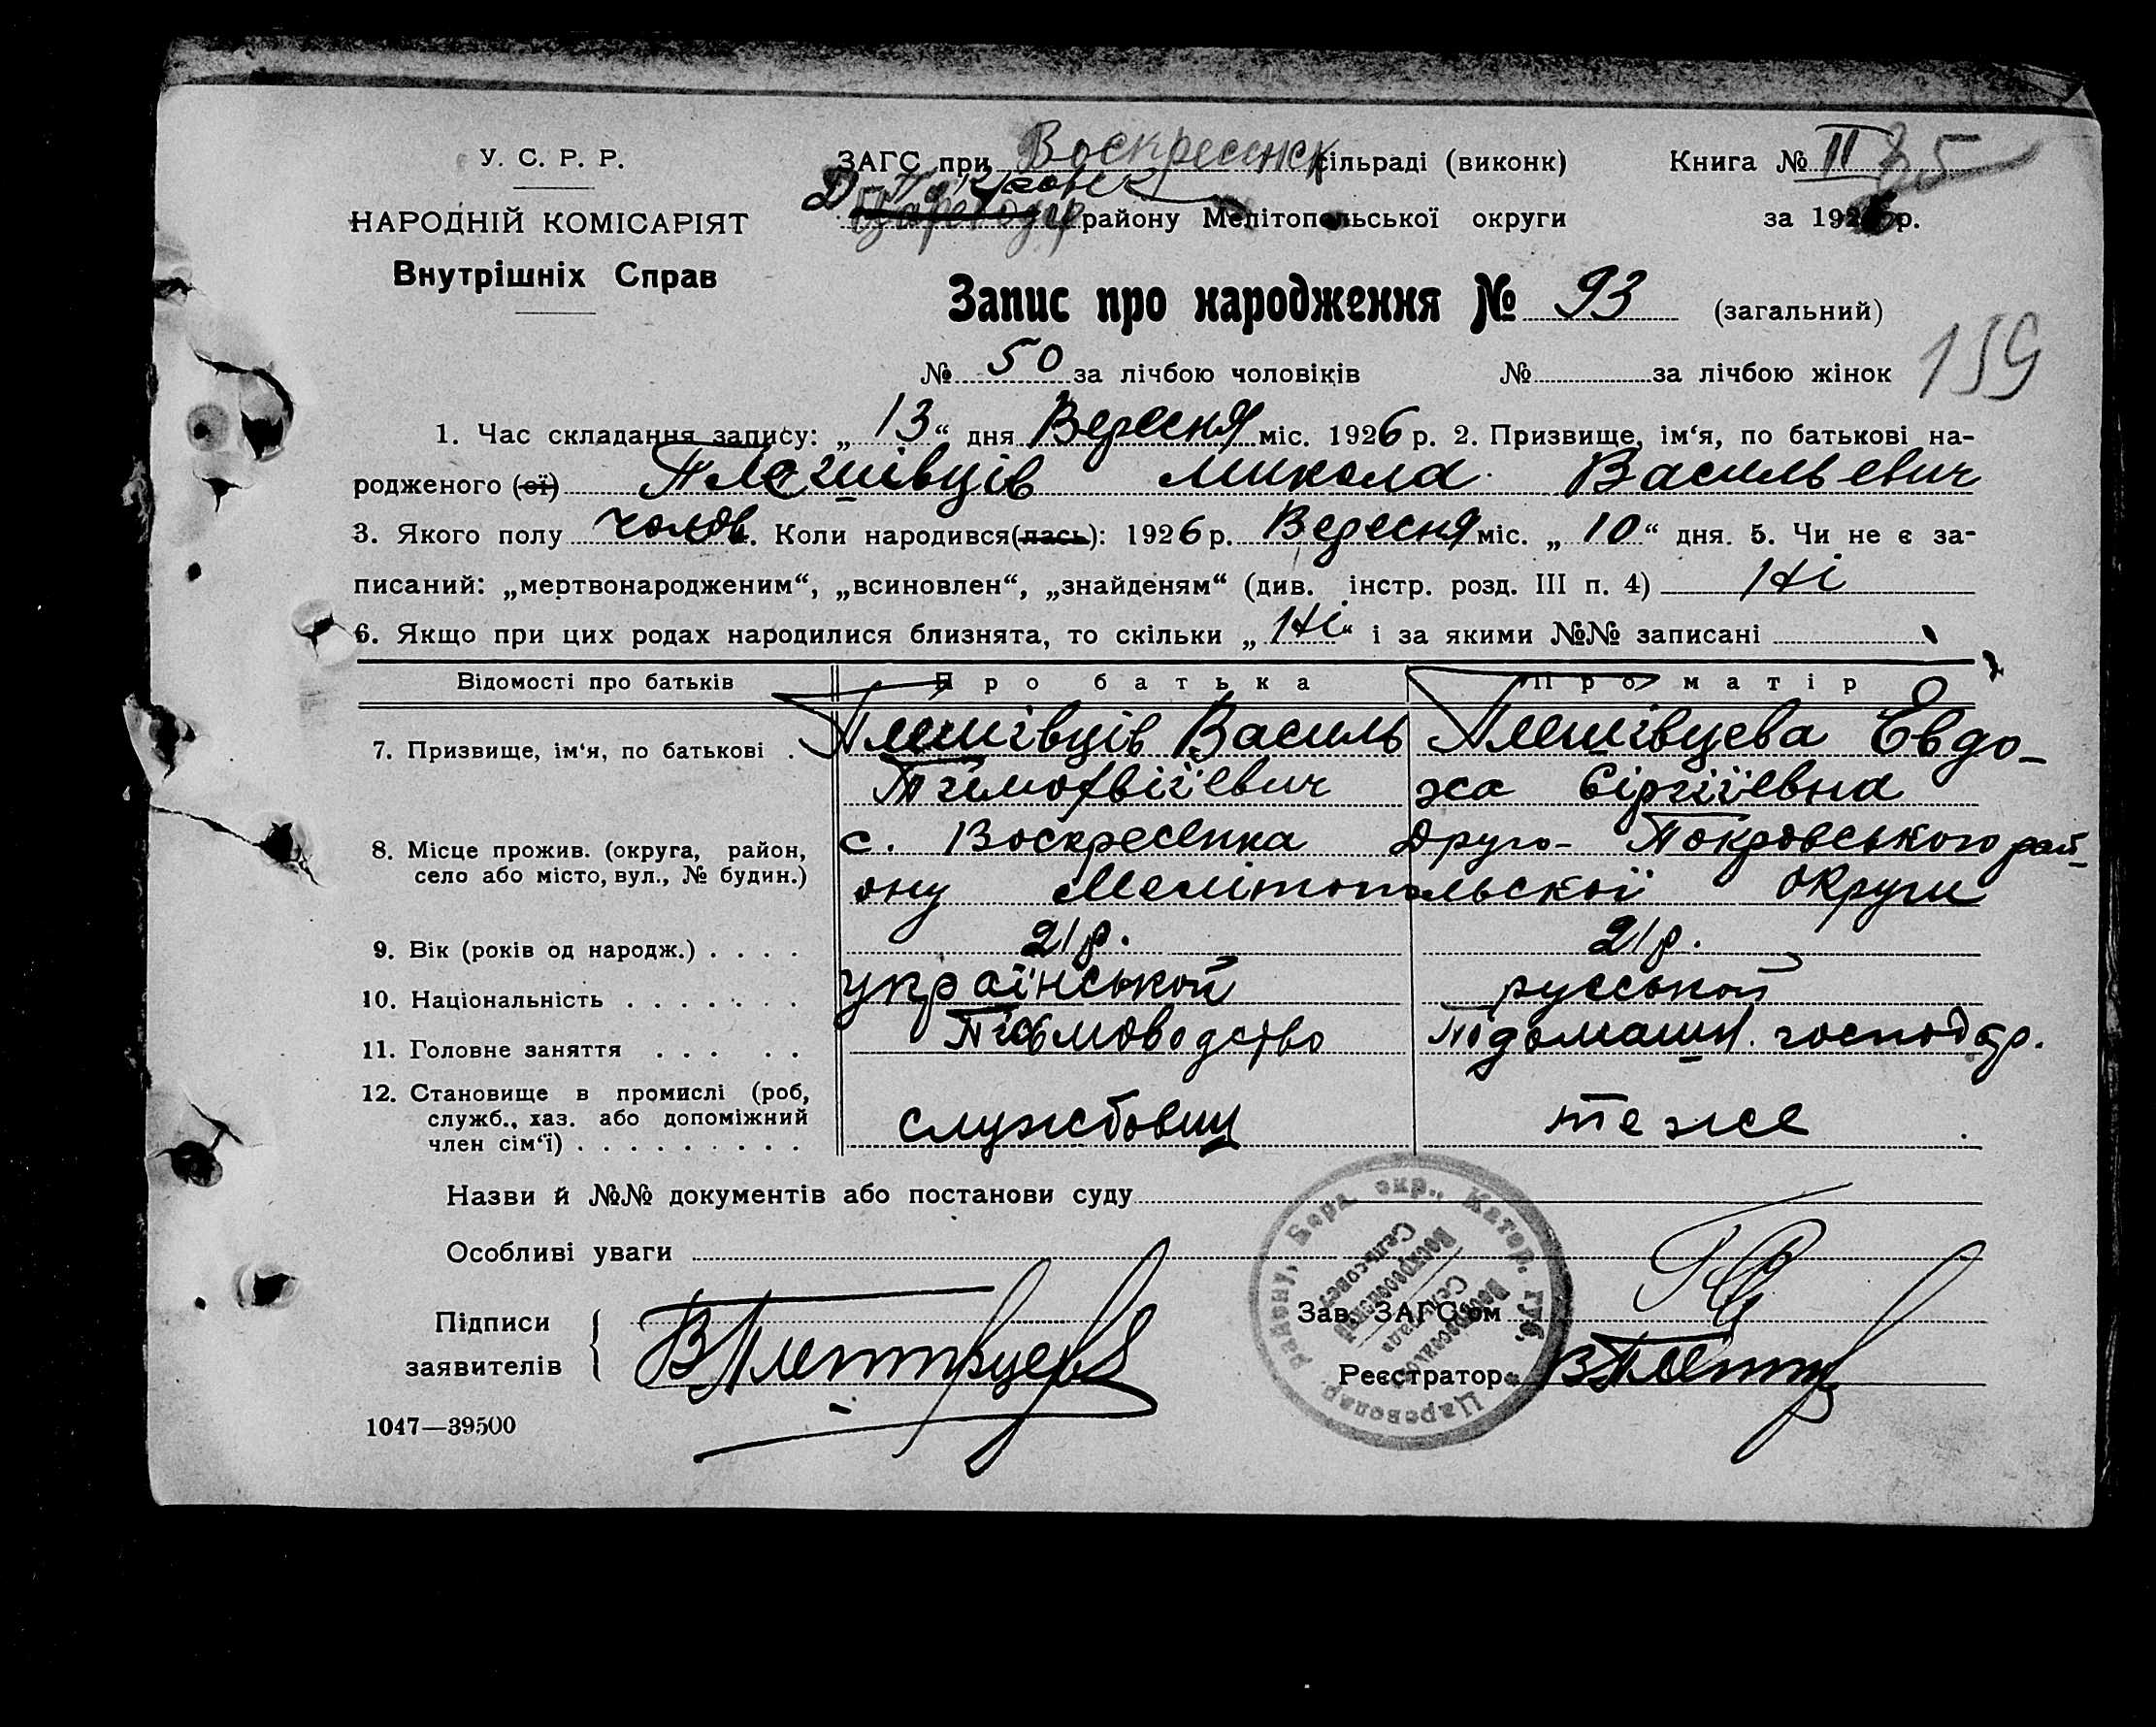 У. С. Р. Р.
НАРОДНІЙ КОМІСАРІЯТ
Внутрішніх Справ
ЗАГС при Воскресенск сільраді (виконк)
Д Покровск
Цареводар району Мелітопольської округи
Книга № II 85
за 1926 р.
Запис про народження № 93 (загальний)
№ 50 за лічбою чоловіків № за лічбою жінок
159
1. Час складання запису: „ 13 “ дня Вересня міс. 1926 р. 2. Призвище, ім‘я, по батькові на-
родженого (ої) Плешівців Микола Васильевич
3. Якого полу чолов. Коли народився(лась): 1926 р. Вересня міс. „ 10 “ дня. 5. Чи не є за-
писаний: „мертвонародженим“, „всиновлен“, „знайденям“ (див. інстр. розд. III п. 4) Ні
6. Якщо при цих родах народилися близнята, то скільки „ Ні “ і за якими №№ записані
Відомості про батьків Про батька Про матір
7. Призвище, ім‘я, по батькові . Плешівців Василь Плешівцева Евдо-
Тімофвіївич хса Сіргіївна
8. Місце прожив. (округа, район, село або місто, вул., № будин.) с. Воскресенка Друго- Покровського рай-
ону Мелітопольскої округи
9. Вік (років од народж.) . . . . 21 р. 21 р.
10. Національність . . . . . . . українськой русськой
11. Головне заняття . . . . . Письмоводство По домашн. господар.
12. Становище в промислі (роб,
служб., хаз. або допоміжний
член сім‘ї) . . . . . . . . . службовец теже
Назви й №№ документів або постанови суду
Особливі уваги
Підписи
заявителів
Зав. ЗАГС‘ом
Реєстратор
району, Берд. окр., Катер. губ.
Цареводар.
Воскресенский
Сельсовет
1047—39500